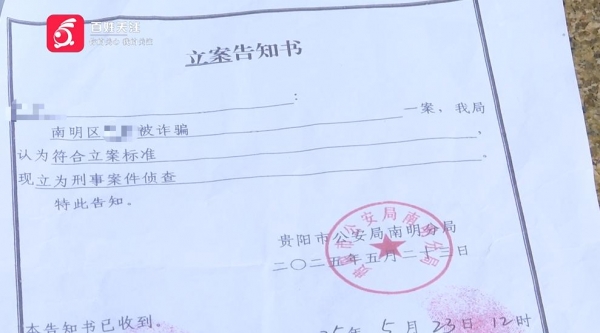 百姓关注
立案告知书
:
南明区 被诈骗 一案，我局
认为符合立案标准，
现立为刑事案件侦查。
特此告知。
贵阳市公安局南明分局
二〇二五年五月二十三日
本告知书已收到。
25年5月23日12时